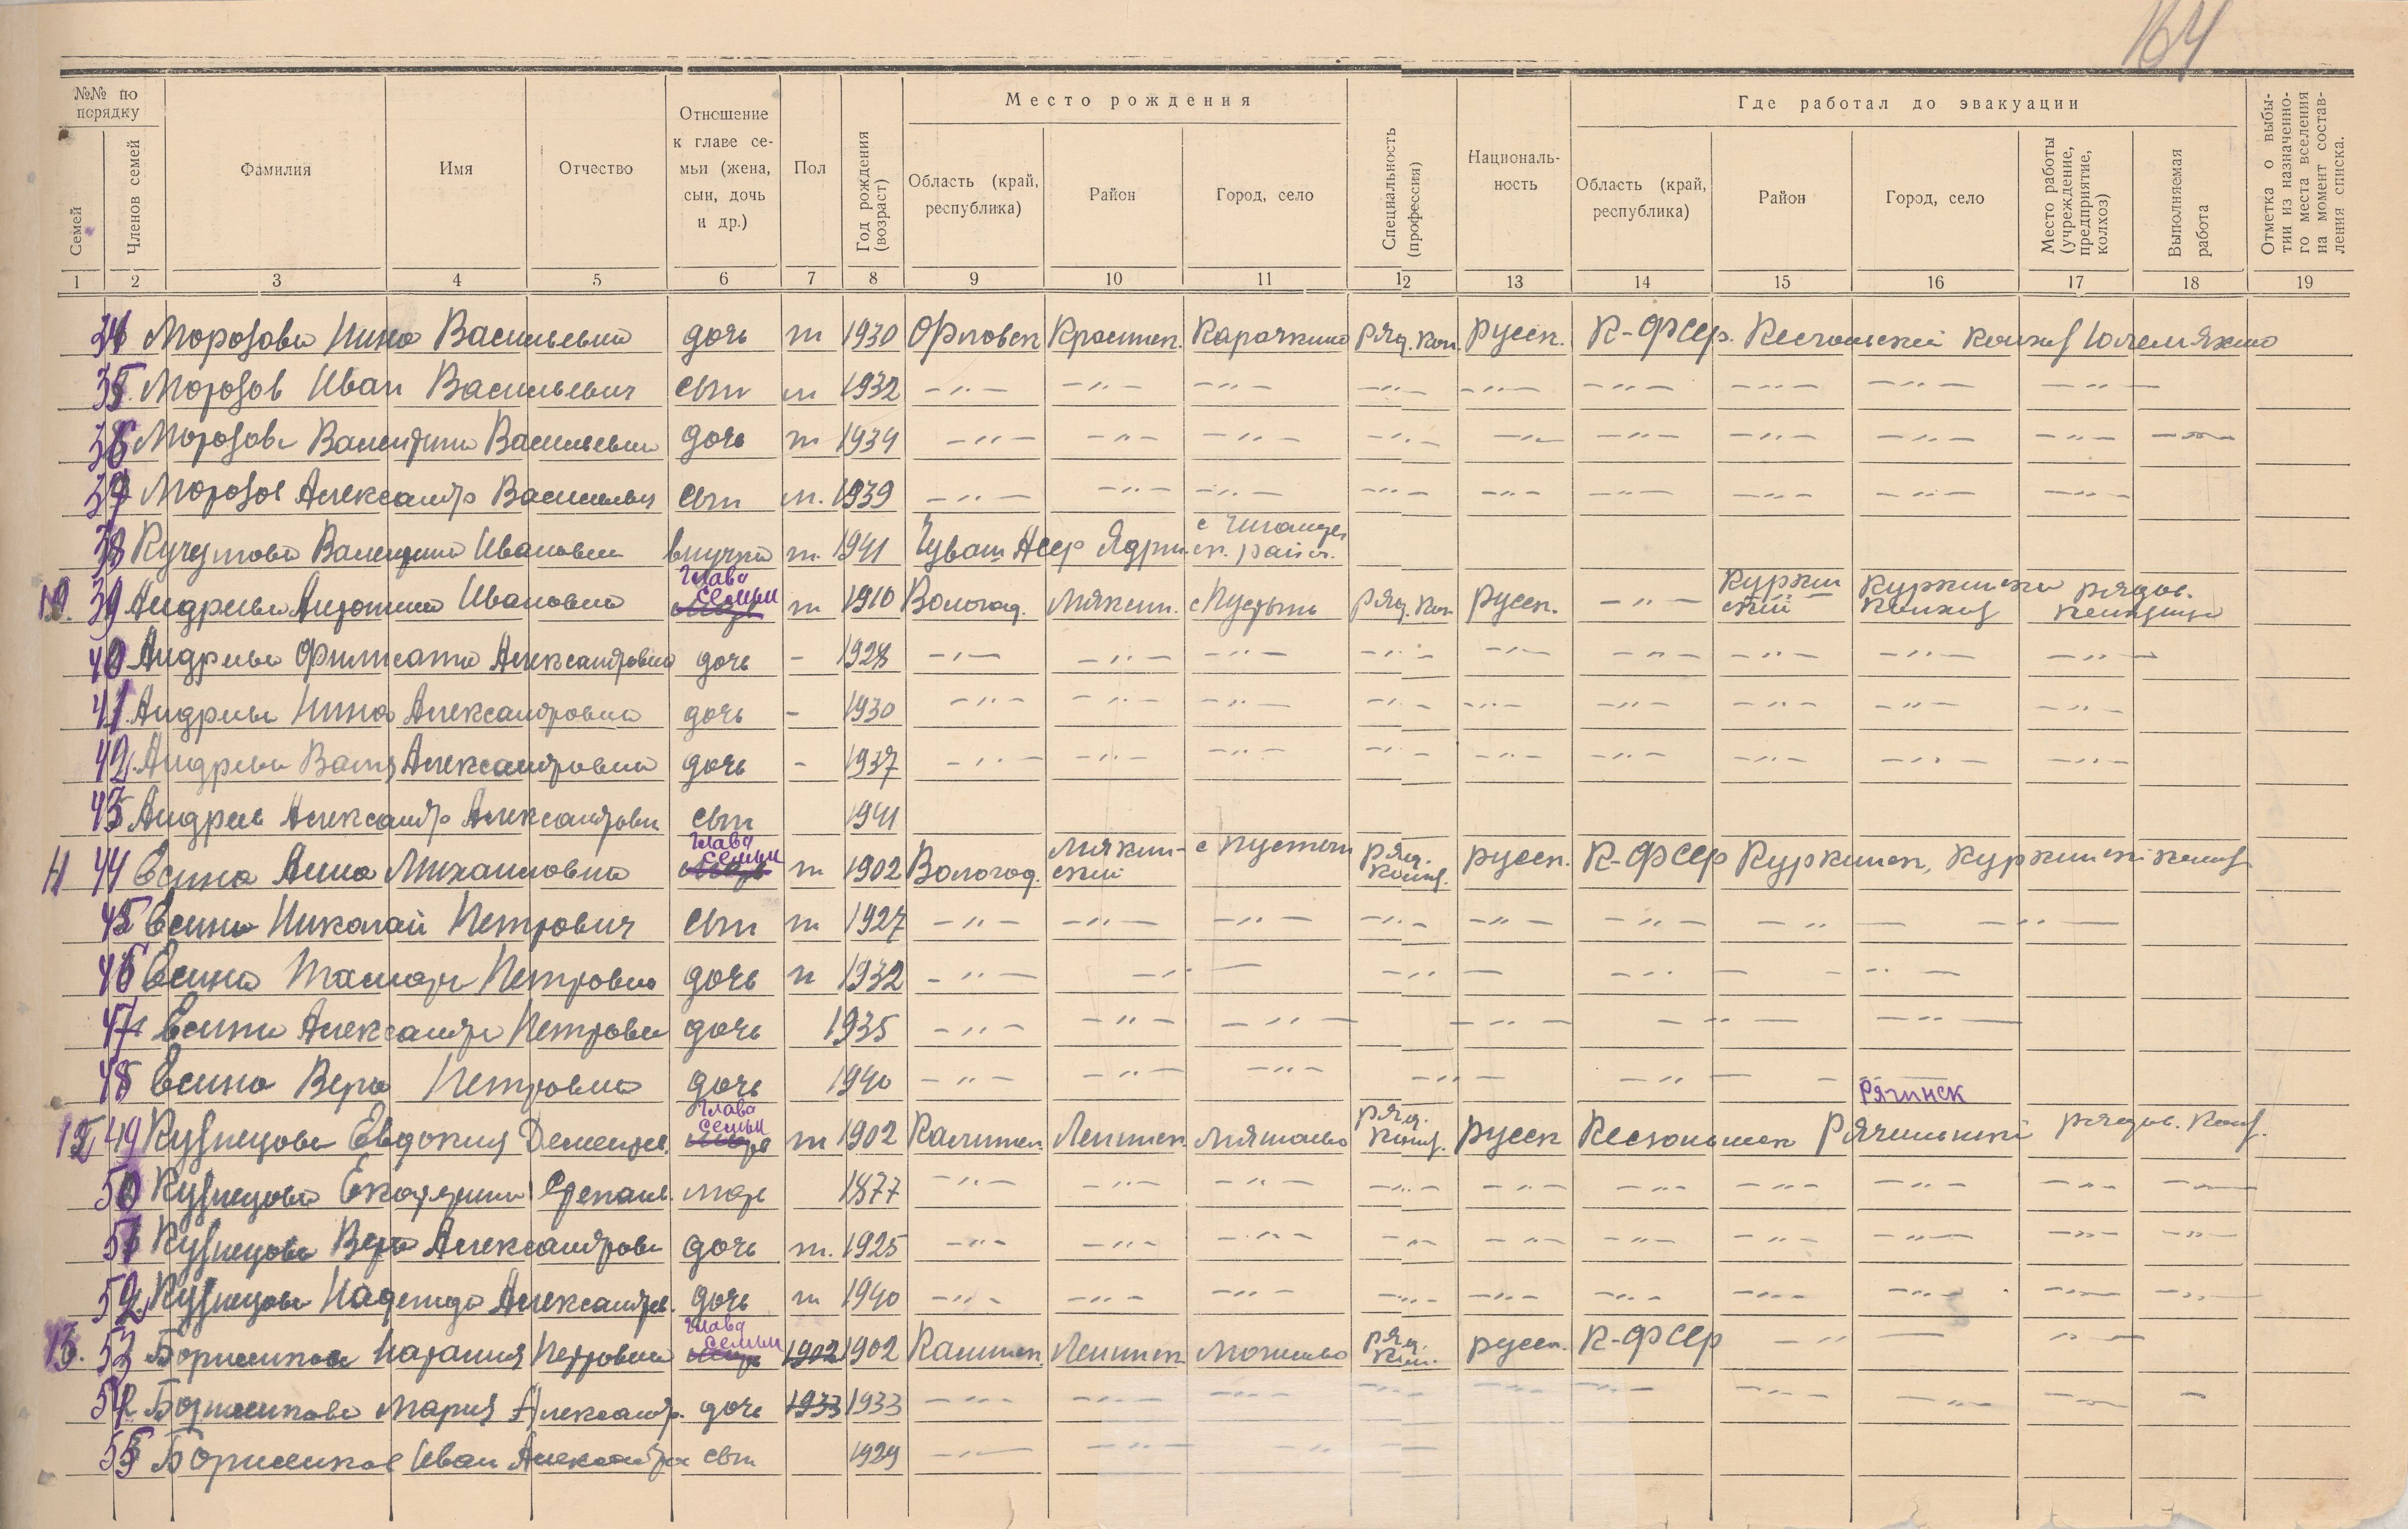 164
№№ по порядку
Семей
Членов семей
Фамилия
Имя
Отчество
Отношение к главе семьи (жена, сын, дочь и др.)
Пол
Год рождения (возраст)
Место рождения
Область (край, республика)
Район
Город, село
Специальность (профессия)
Националь-
ность
Где работал до эвакуации
Область (край, республика)
Район
Город, село
Место работы (учреждение, предприятие, колхоз)
Выполняемая работа
Отметка о выбы-
тии из назначенно-
го места вселения
на момент состав-
ления списка.
1 2 3 4 5 6 7 8 9 10 11 12 13 14 15 16 17 18 19
34 Морозова Нина Васильевна дочь 1930 Орловск Краснен. Карачкино ряд. кол. русск. К-ФССР. Кестеньгский колхоз
35. Морозов Иван Васильевич сын м 1932 -"- -"- -"- -"- -"- -"- -"- -"- -"-
36 Морозова Валентина Васильевна дочь 1934 -"- -"- -"- -"- -"- -"- -"- -"- -"- -"-
37 Морозов Александр Васильевич сын м. 1939 -"- -"- -"- -"- -"- -"- -"- -"- -"-
38 Валентина Ивановна внучка 1941 Чуваш АССР Ядрин.ск. район.
10. 39 Андреева Антонина Ивановна Глава семьи 1910 Вологод. Мяксин. с Пустынь ряд. кол. русск. -"- Куркин
ский Куркински
колхоз рядов.
колхозница
40 Андреева Александровна дочь - 1928 -"- -"- -"- -"- -"- -"- -"- -"- -"-
41. Андреева Нина Александровна дочь - 1930 -"- -"- -"- -"- -"- -"- -"- -"- -"-
42. Андреева Валя Александровна дочь - 1937 -"- -"- -"- -"- -"- -"- -"- -"- -"-
43 Андреев Александр Александрови сын 1941
11 44 Есина Анна Михаиловна Глава семьи 1902 Вологод. Мяксин-
ский с Пустынь ряд.
колх. русск. К-ФССР Куркинск, Куркински колхоз
45 Есин Николай Петрович сын 1927 -"- -"- -"- -"- -"- -"- -"- -"-
46 Есина Тамара Петровна дочь 1932 -"- -"- -"- -"- -"-
47 Есина Александра Петровна дочь 1935 -"- -"- -"- -"- -"- -"-
48 Есина Вера Петровна дочь 1940 -"- -"- -"- -"- -"-
Рягинск
12 49 Кузнецова Евдокия Дементьев. Глава семьи 1902 Калинин. Ленинск. ряд.
колх. русск рядов. колх.
50 Кузнецова Екатерина Степан. мать 1877 -"- -"- -"- -"- -"- -"- -"- -"- -"- -"-
51 Кузнецова Вера Александровн дочь 1925 -"- -"- -"- -"- -"- -"- -"- -"- -"- -"-
52. Кузнецова Надежда Александров. дочь 1940 -"- -"- -"- -"- -"- -"- -"- -"- -"- -"-
13. 53 Петровна Глава семьи 1902 1902 Калинин. Ленинск. ряд.
кол. русск. К-ФССР -"- -"-
54 Мария Александр. дочь 1933 1933 -"- -"- -"- -"- -"- -"- -"-
55 Иван сын 1929 -"- -"- -"-